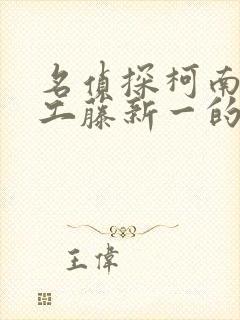 名偵探柯南
工藤新一的
王偉